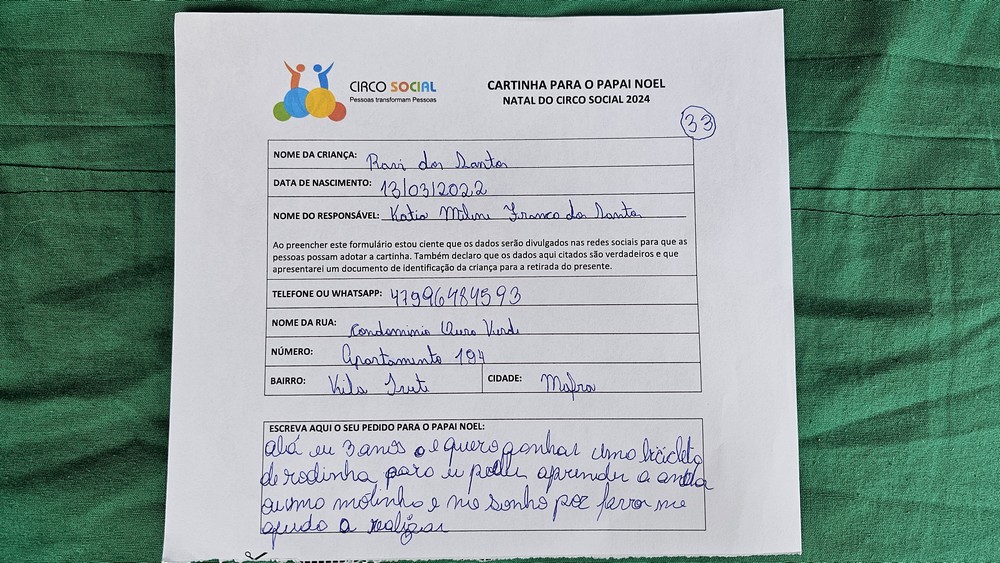 CIRCO SOCIAL
Pessoas transformam Pessoas
CARTINHA PARA O PAPAI NOEL
NATAL DO CIRCO SOCIAL 2024
33
NOME DA CRIANÇA: Ravi dos Santos
DATA DE NASCIMENTO: 13/03/2022
NOME DO RESPONSÁVEL: Katia Milene Franco dos Santos
Ao preencher este formulário estou ciente que os dados serão divulgados nas redes sociais para que as
pessoas possam adotar a cartinha. Também declaro que os dados aqui citados são verdadeiros e que
apresentarei um documento de identificação da criança para a retirada do presente.
TELEFONE OU WHATSAPP: 47996484593
NOME DA RUA: Condominio Ouro Verde
NÚMERO: Apartamento 194
BAIRRO: Vila CIDADE: Mafra
ESCREVA AQUI O SEU PEDIDO PARA O PAPAI NOEL:
olá eu 3 anos e quero ganhar uma bicicleta
de rodinha para eu poder aprender a
ou uma motinho e meu sonho por favor me
ajuda a realizar